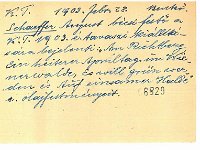 K.T. 1903. febr. 28.
Schaeffer August bécsi festő a
K.T. 1903. évi tavaszi kiállítá-
sára bejelenti „Am
ein heiterer Apriltag im Wie-
nerwalde, Es will grün wer-
den és Auf einsamer Halde"
c. olajfestményeit.
8829